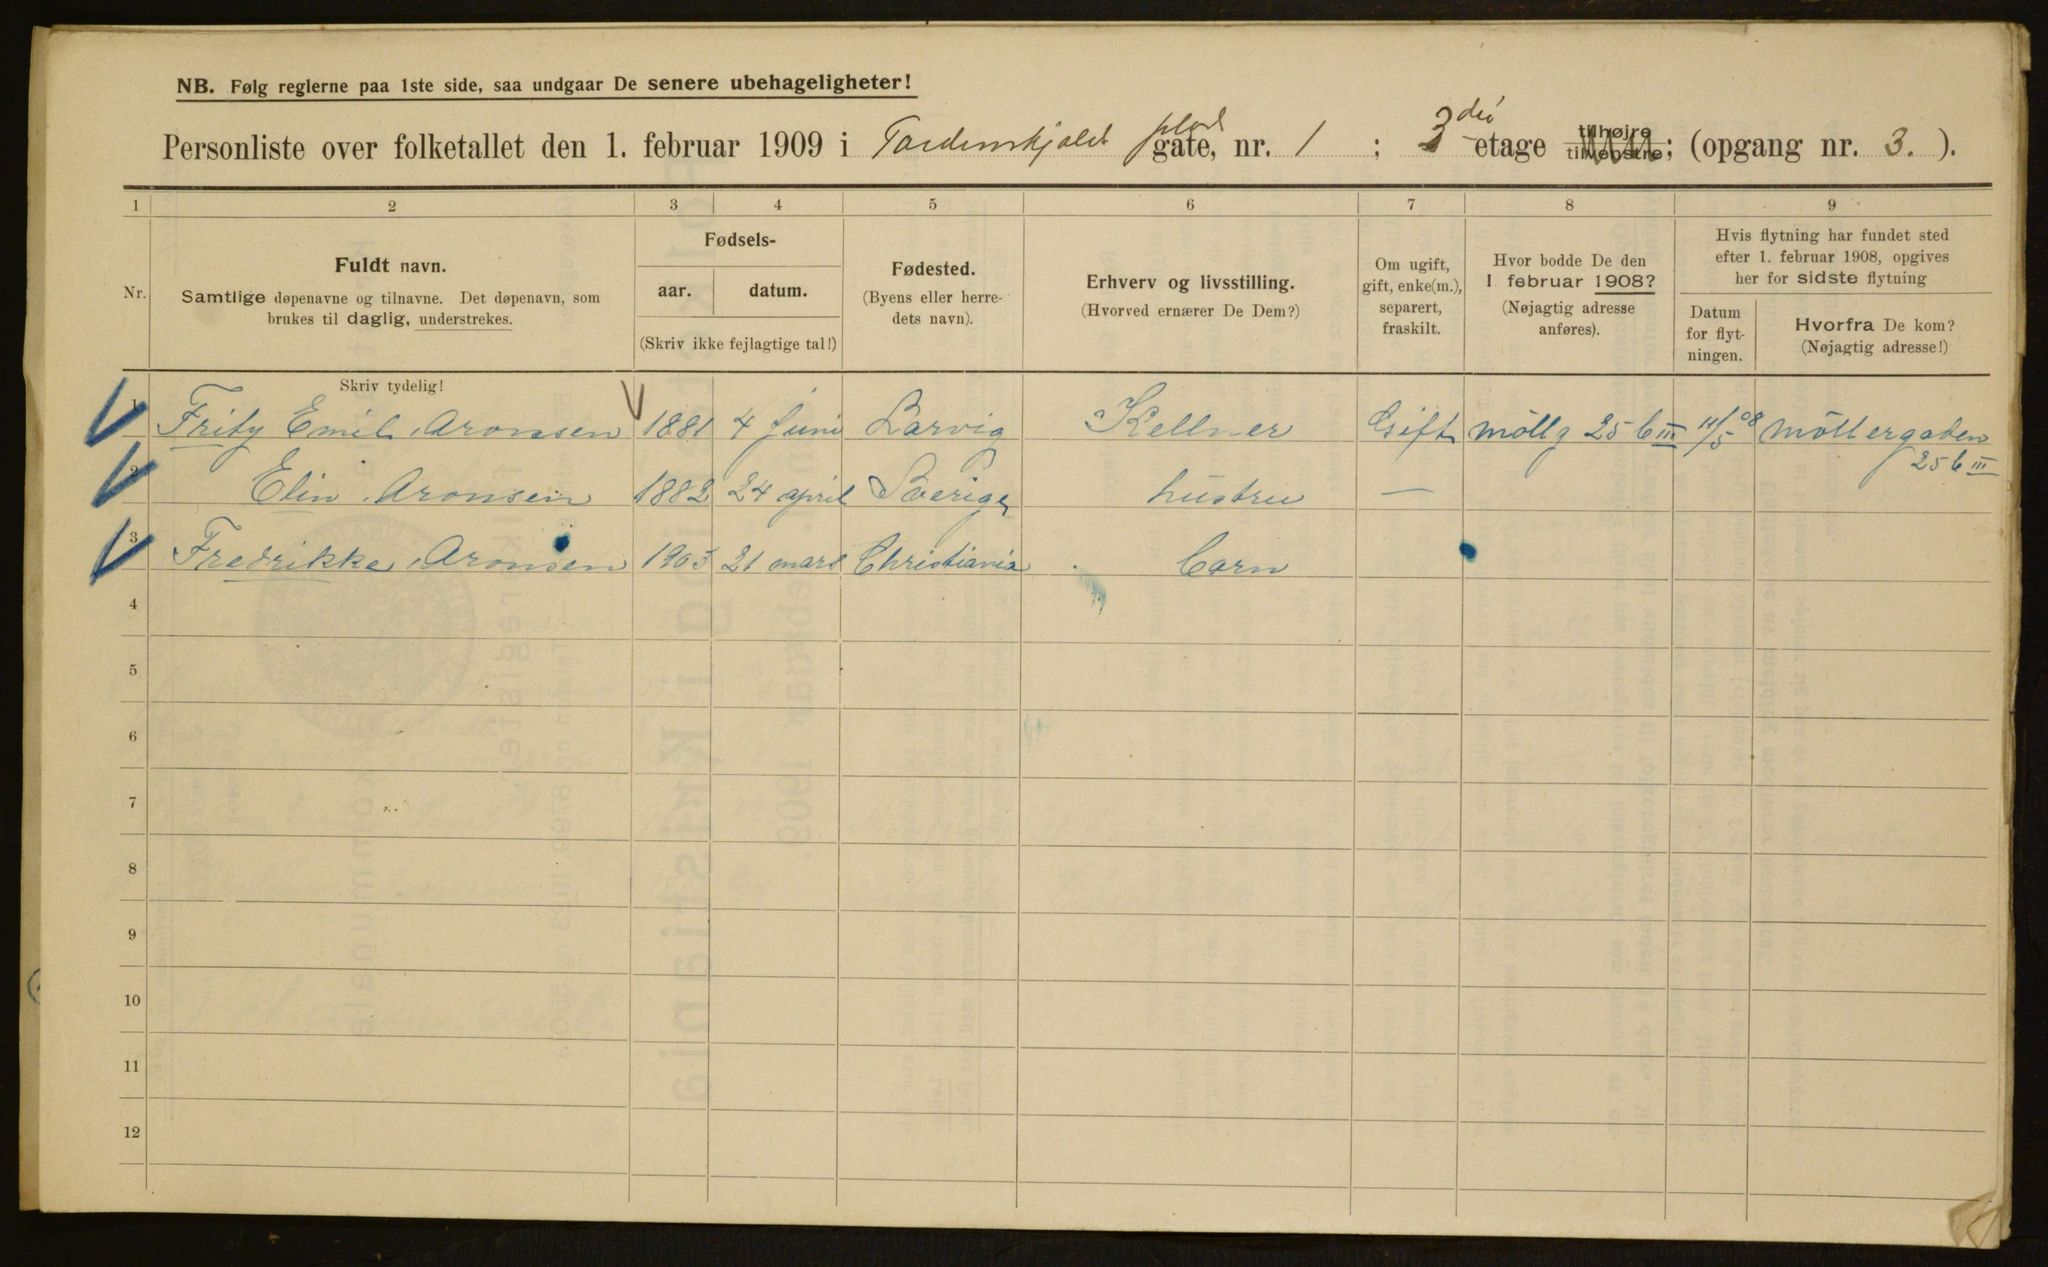 NB. Følg reglerne paa 1ste side, saa undgaar De senere ubehageligheter!
Personliste over folketallet den 1. februar 1909 i Tordenskjolds plads gate, nr. 1 ; 3 die etage tilhøjre tilvenstre; (opgang nr. 3. ).
1 2 3 4 5 6 7 8 9
Nr.
Fuldt navn.
Samtlige døpenavne og tilnavne. Det døpenavn, som
brukes til daglig, understrekes.
Skriv tydelig!
Fødsels-
aar. datum.
(Skriv ikke fejlagtige tal!)
Fødested.
(Byens eller herre-
dets navn).
Erhverv og livsstilling.
(Hvorved ernærer De Dem?)
Om ugift,
gift, enke(m.),
separert,
fraskilt.
Hvor bodde De den
1 februar 1908?
(Nøjagtig adresse
anføres).
Hvis flytning har fundet sted
efter 1. februar 1908, opgives
her for sidste flytning
Datum
for flyt-
ningen.
Hvorfra De kom?
(Nøjagtig adresse!)
1 Fritz Emil Aronsen 1881 4 Juni Larvig Kellner Gift möllg 25 b III 11/5 08 Möllergaden
25 b III
2 Elin Aronsen 1882 24 april Sverige hustru —
3 Fredrikke Aronsen 1903 21 mars Christiania barn
4
5
6
7
8
9
10
11
12